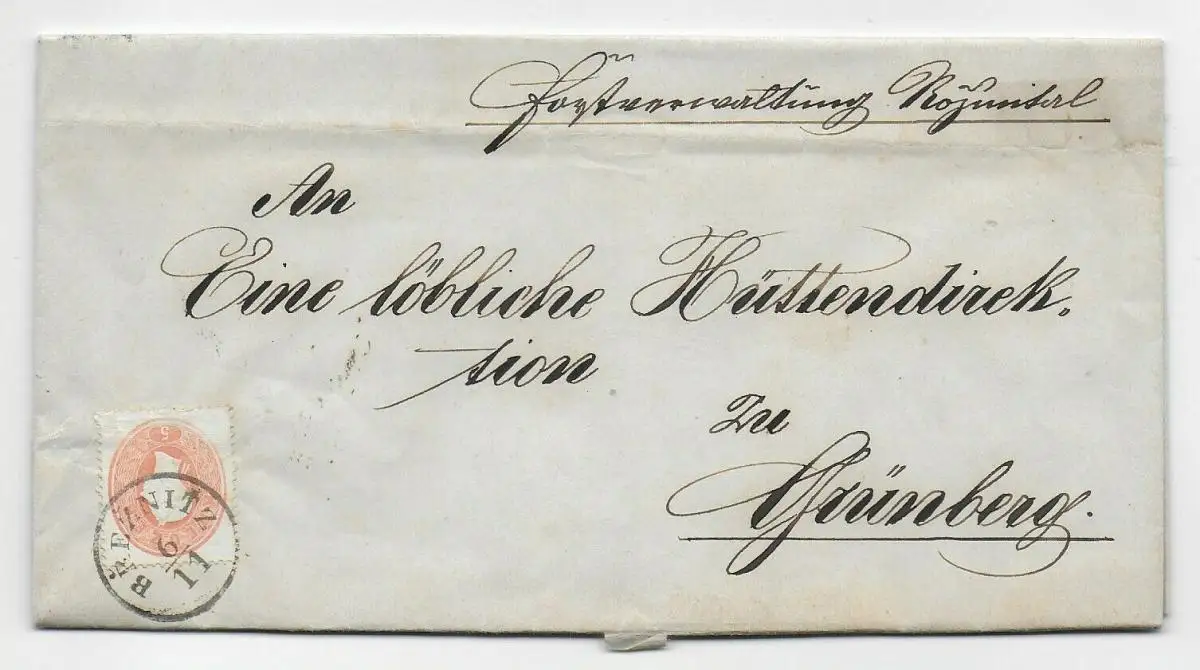 Forstverwaltung Rožmital
An
Eine löbliche Hüttendirek-
tion
Zu
Grünberg.
5
BŘEZNITZ
6/11